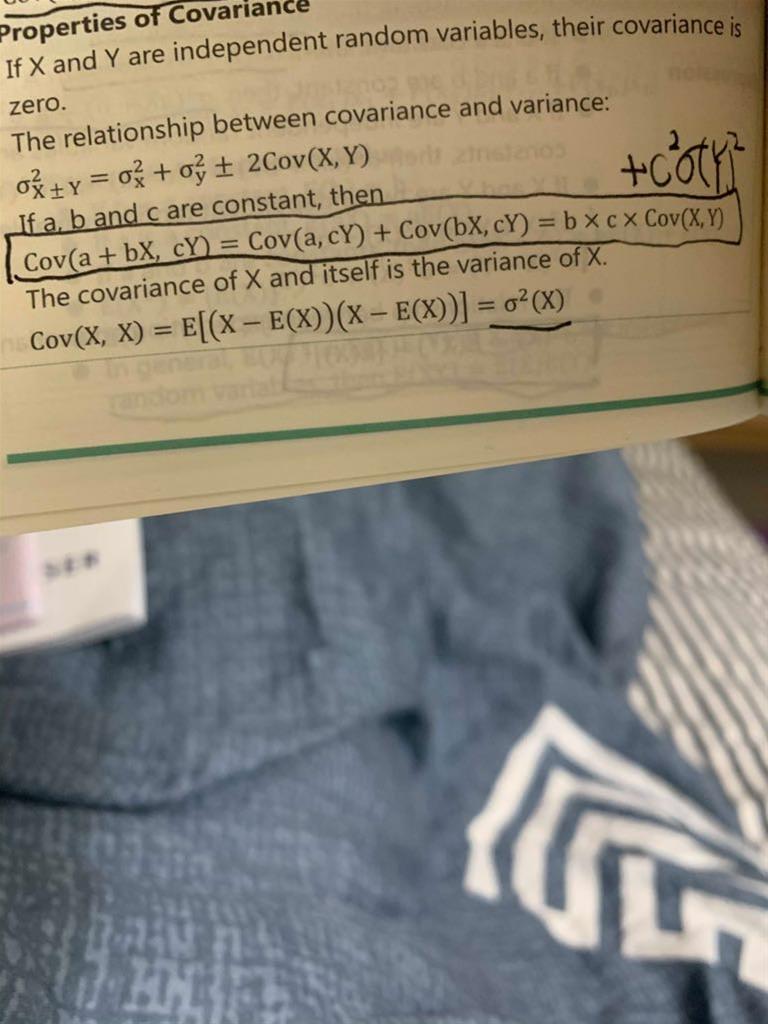 Properties of Covariance
If X and Y are independent random variables, their covariance is
zero.
The relationship between covariance and variance:
σ²_{X±Y} = σ²_x + σ²_y ± 2Cov(X, Y)
+c²σ(Y)²
If a, b and c are constant, then
Cov(a + bX, cY) = Cov(a, cY) + Cov(bX, cY) = b × c × Cov(X, Y)
The covariance of X and itself is the variance of X.
Cov(X, X) = E[(X − E(X))(X − E(X))] = σ²(X)